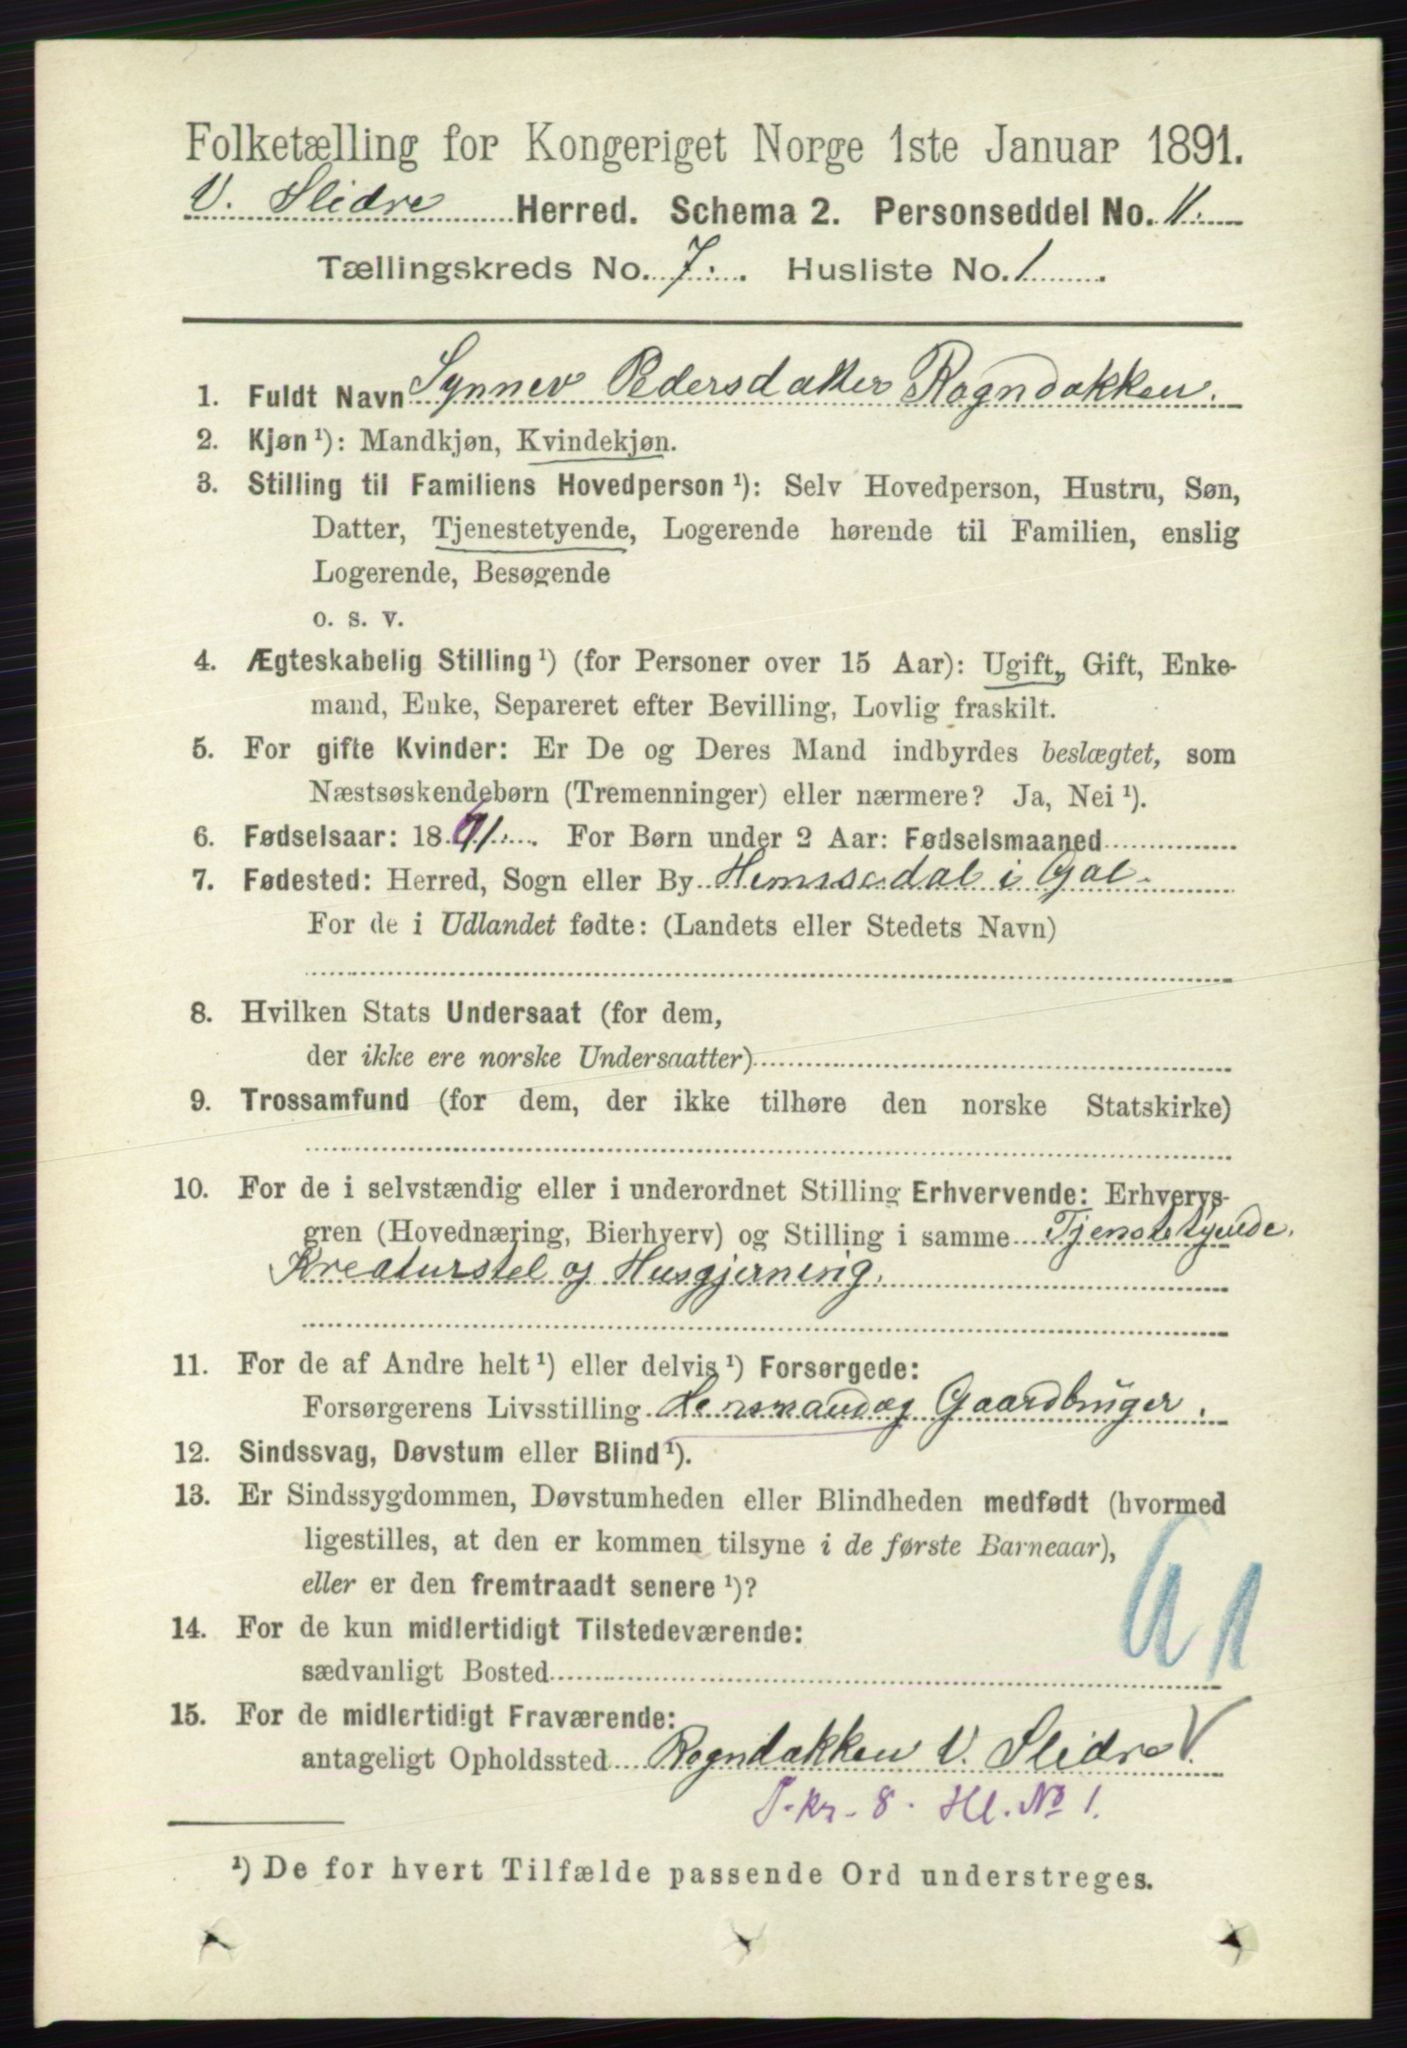 Folketælling for Kongeriget Norge 1ste Januar 1891.
V. Slidre Herred. Schema 2. Personseddel No. 11.
Tællingskreds No. 7. Husliste No. 1
1. Fuldt Navn Synnev Pedersdatter Rogndokken.
2. Kjøn ¹): Mandkjøn, Kvindekjøn.
3. Stilling til Familiens Hovedperson ¹): Selv Hovedperson, Hustru, Søn,
Datter, Tjenestetyende, Logerende hørende til Familien, enslig
Logerende, Besøgende
o. s. v.
4. Ægteskabelig Stilling ¹) (for Personer over 15 Aar): Ugift, Gift, Enke-
mand, Enke, Separeret efter Bevilling, Lovlig fraskilt.
5. For gifte Kvinder: Er De og Deres Mand indbyrdes beslægtet, som
Næstsøskendebørn (Tremenninger) eller nærmere? Ja, Nei ¹).
6. Fødselsaar: 1861. For Børn under 2 Aar: Fødselsmaaned
7. Fødested: Herred, Sogn eller By Hemsedal i Gol.
For de i Udlandet fødte: (Landets eller Stedets Navn)
8. Hvilken Stats Undersaat (for dem,
der ikke ere norske Undersaatter)
9. Trossamfund (for dem, der ikke tilhøre den norske Statskirke)
10. For de i selvstændig eller i underordnet Stilling Erhvervende: Erhvervs-
gren (Hovednæring, Bierhverv) og Stilling i samme Tjenestetyende,
Kreaturstel og Husgjerning.
11. For de af Andre helt ¹) eller delvis ¹) Forsørgede:
Forsørgerens Livsstilling Gaardbruger.
12. Sindssvag, Døvstum eller Blind ¹).
13. Er Sindssygdommen, Døvstumheden eller Blindheden medfødt (hvormed
ligestilles, at den er kommen tilsyne i de første Barneaar),
eller er den fremtraadt senere ¹)?
14. For de kun midlertidigt Tilstedeværende:
sædvanligt Bosted
15. For de midlertidigt Fraværende:
antageligt Opholdssted Rogndokken V. Slidre V.
T. kr. 8. Hl. No 1.
¹) De for hvert Tilfælde passende Ord understreges.